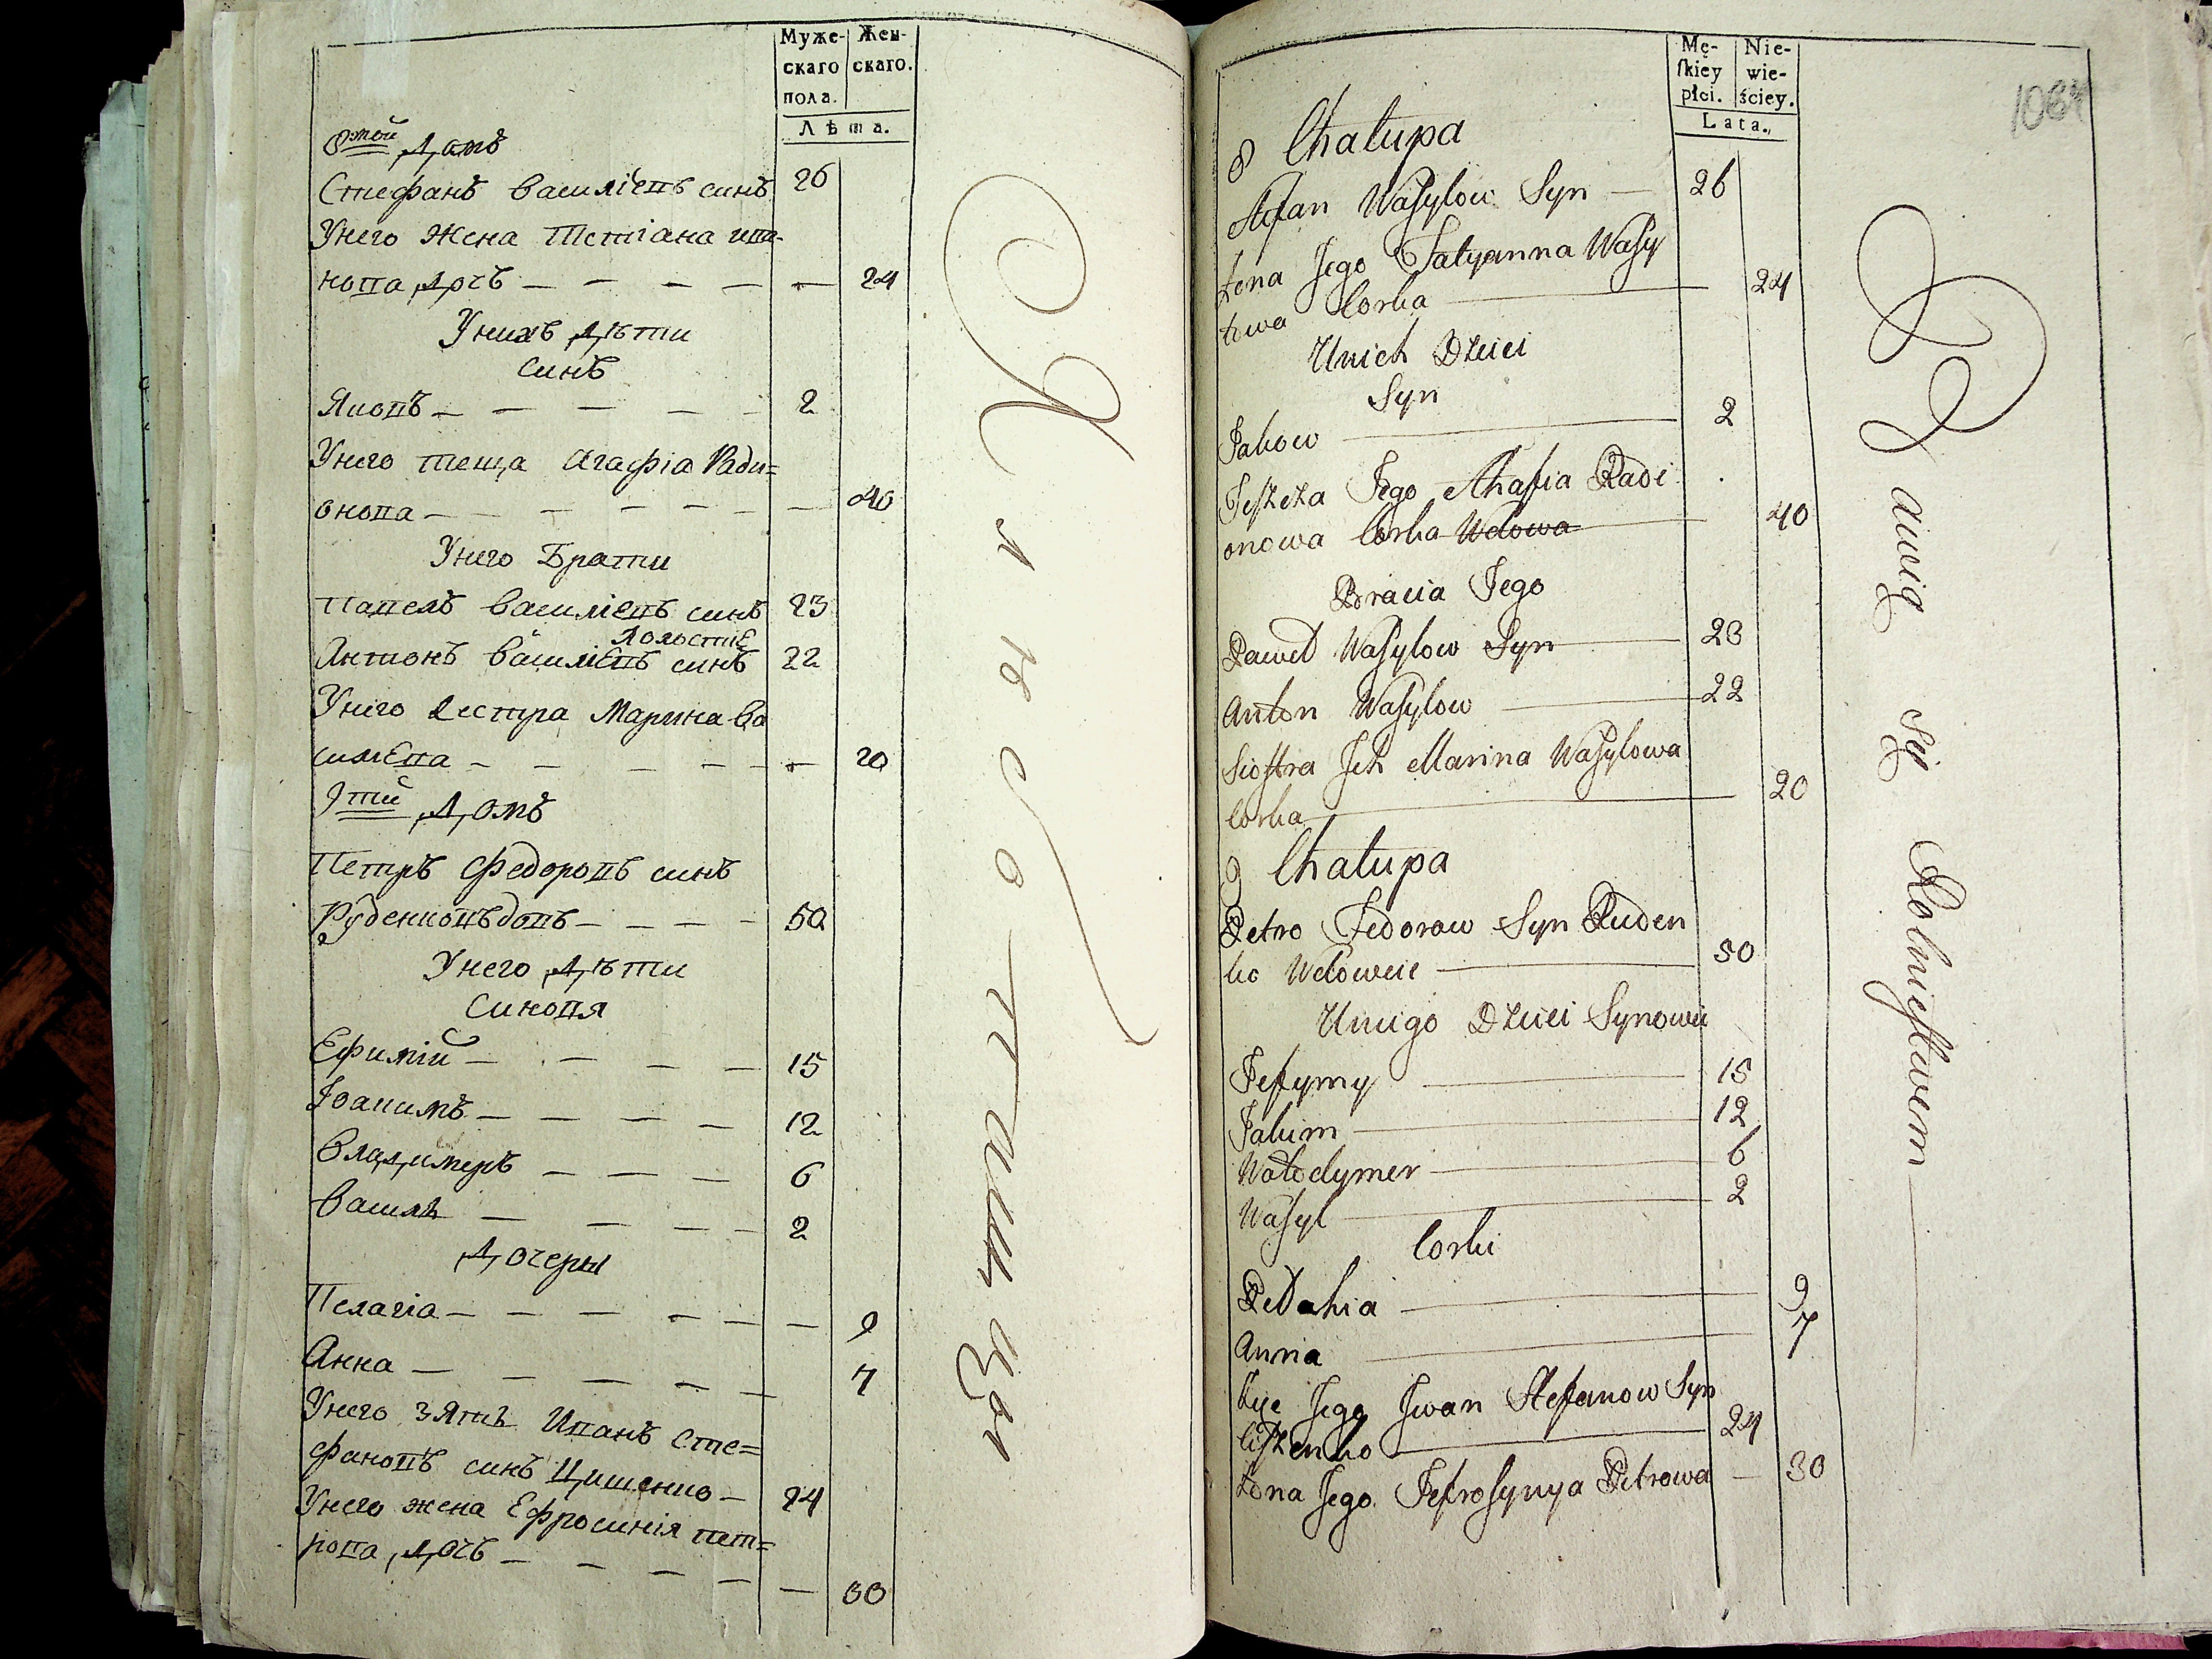 Муже-
скаго
пола.
Жен-
скаго.
Лѣта.
8мой Домъ
Стефанъ Василіевъ синъ 26
Унего Жена Тетіана ива-
нова дочъ — — — — — 24
Унихъ дѣти
Синъ
Яковъ — — — — — 2
Унего теща Агафіа Ради=
онова — — — — — — 40
Унего Брати
Павелъ Василіевъ синъ 23
Холостие
Антонъ Василіевъ синъ 22
Унего Сестра Марина Ва
силева — — — — — 20
9тий Домъ
Петръ Федоровъ синъ
Руденко вдовъ — — — 50
Унего дѣти
Синовя
Ефимій — — — — 15
Іоакимъ — — — — 12
Владимеръ — — — 6
Василь — — — — 2
Дочеры
Пелагіа — — — — — — 9
Анна — — — — — 7
Унего зять Иванъ Сте=
фановъ синъ Цишенко — 24
Унего жена Ефросинія пет=
рова дочъ — — — — — 30
Хлѣбопашцы
Mę-
skiey
płci.
Nie-
wie-
ściey.
Lata.
8 Chałupa
Stefan Wasylow Syn — 26
Żona Jego Tatyanna Wasy
łowa Corka — 24
Unich Dzieci
Syn
Jakow — 2
Teszcza Jego Ahafia Radi
onowa Corka Wdowa — 40
Bracia Jego
Paweł Wasylow Syn — 23
Anton Wasylow — 22
Siostra Jch Marina Wasylowa
Corka — 20
9 Chałupa
Petro Fedorow Syn Ruden
ko Wdowiec — 50
Uniego Dzieci Synowie
Jefymy — 15
Jakim — 12
Wołodymer — 6
Wasyl — 2
Corki
Pełahia — 9
Anna — 7
Jego Jwan Stefanow Syn
Ciszenko — 24
Żona Jego Jefrosynya Petrowa — 30
Bawią się Rolnictwem —